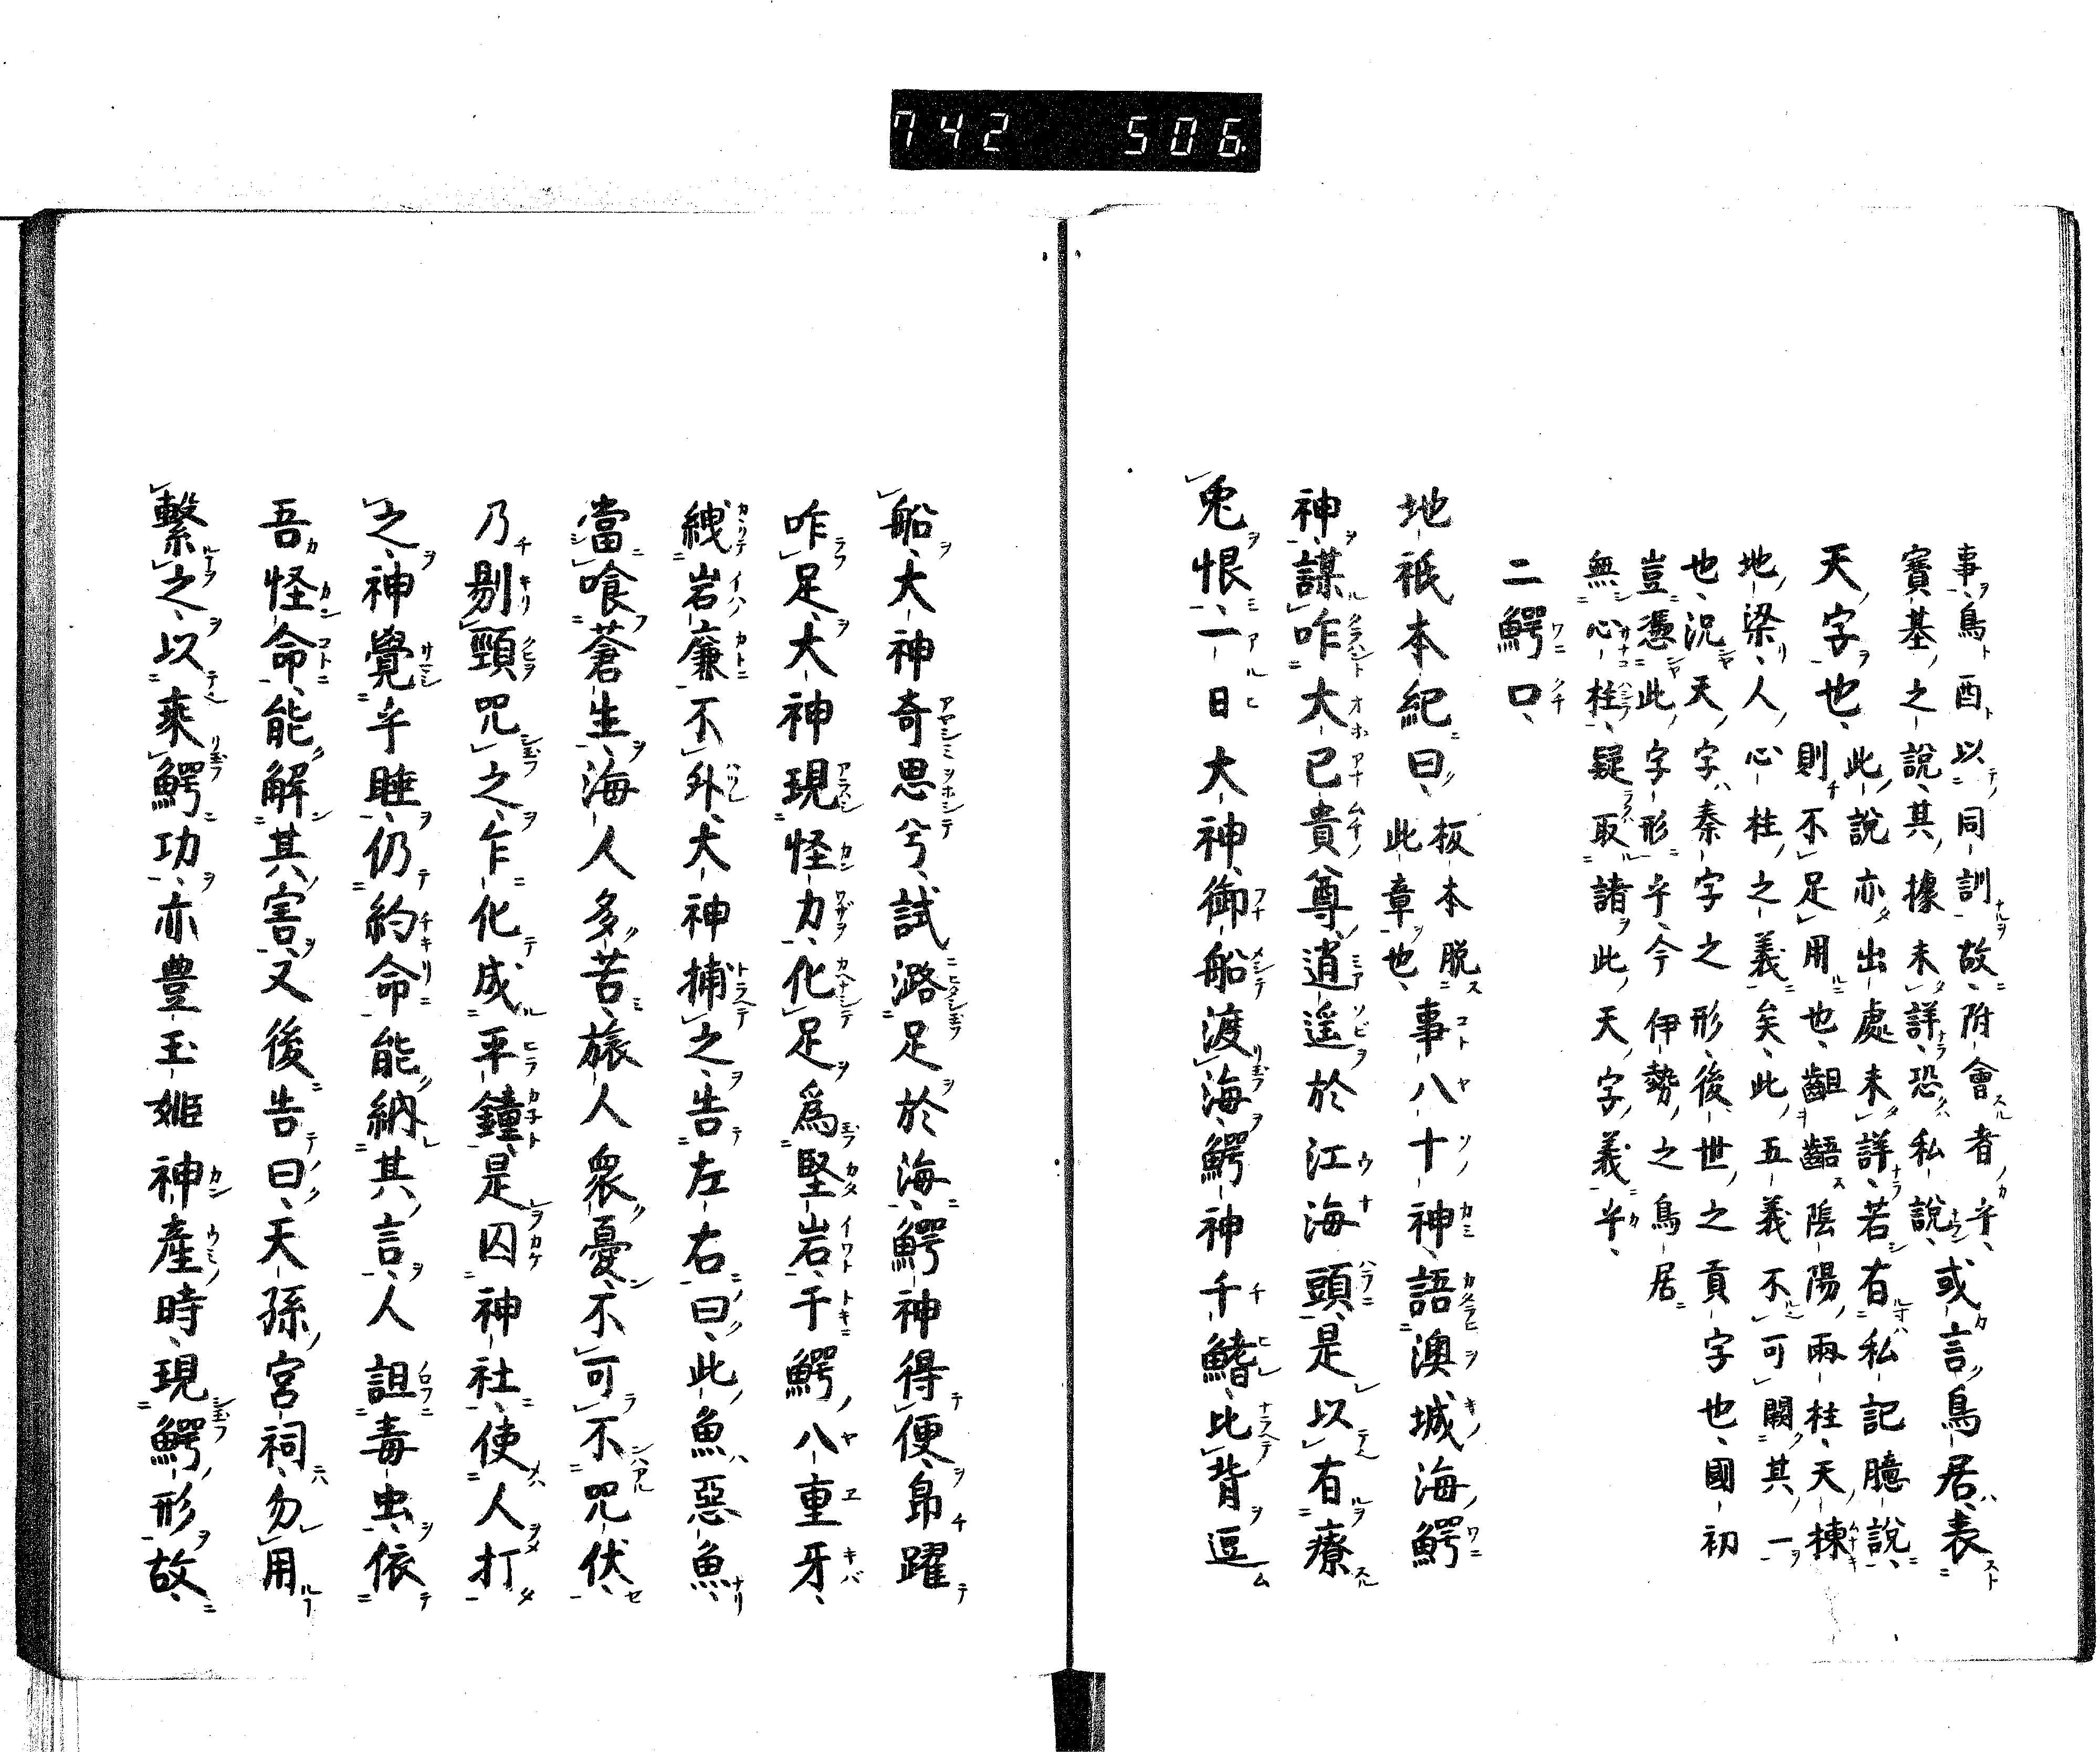 742 506
事、鳥酉以同訓故、附會者乎、或言鳥居、表
寶基之說、其據未詳、恐私說、
天字也、此說亦出處未詳、若有私記臆說、
則不足用也、齟齬陰陽兩柱、天棟
地梁、人心柱之義矣、此五義不可闕其一
也、況天字秦字之形、後世之貢字也、國初
豈憑此字形乎、今伊勢之鳥居
無心柱、疑取諸此天字義乎、
二鰐口、
地祇本紀曰、板本脱此章也、事八十神、語澳城海鰐
神、謀咋大已貴尊、逍遥於江海頭、是以有療
兎恨、一日大神、御船渡海、鰐神千鰭、比背逗
船、大神奇思兮、試潞足於海、鰐神得便、帛躍
咋足、大神現怪力、化足爲堅岩、于鰐八重牙、
緤岩廉不外、大神捕之、告左右曰、此魚惡魚、
當喰蒼生、海人多苦、旅人衆憂、不可不咒伏、
乃剔頸咒之、乍化成平鐘、是囚神社、使人打
之、神覺乎睡、仍約命能納其言、人詛毒虫、依
吾怪命、能解其害、又後告曰、天孫宮祠、勿用
繫之、以来鰐功、亦豊玉姫神產時、現鰐形故、